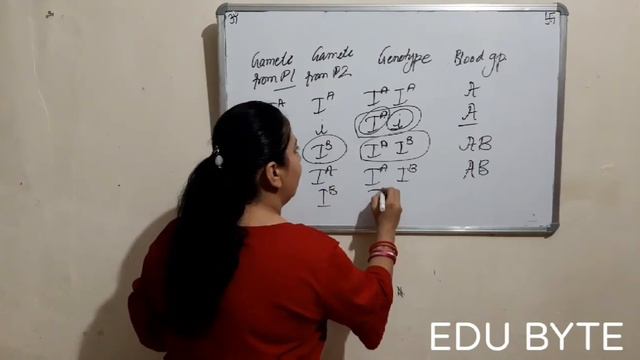 Gamete Gamete Genotype Blood gp.
from P1 from P2
I^A I^A I^A I^A A
i I^A i A
I^B I^A I^B AB
I^A I^A I^B AB
I^B
EDU BYTE